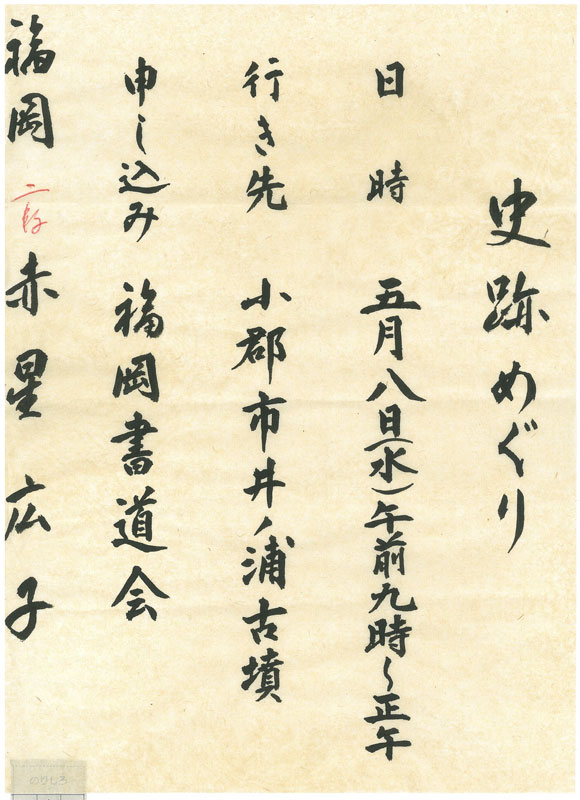 史跡めぐり
日時 五月八日(水)午前九時〜正午
行き先 小郡市井ノ浦古墳
申し込み 福岡書道会
福岡 二段 赤星広子
のりしろ